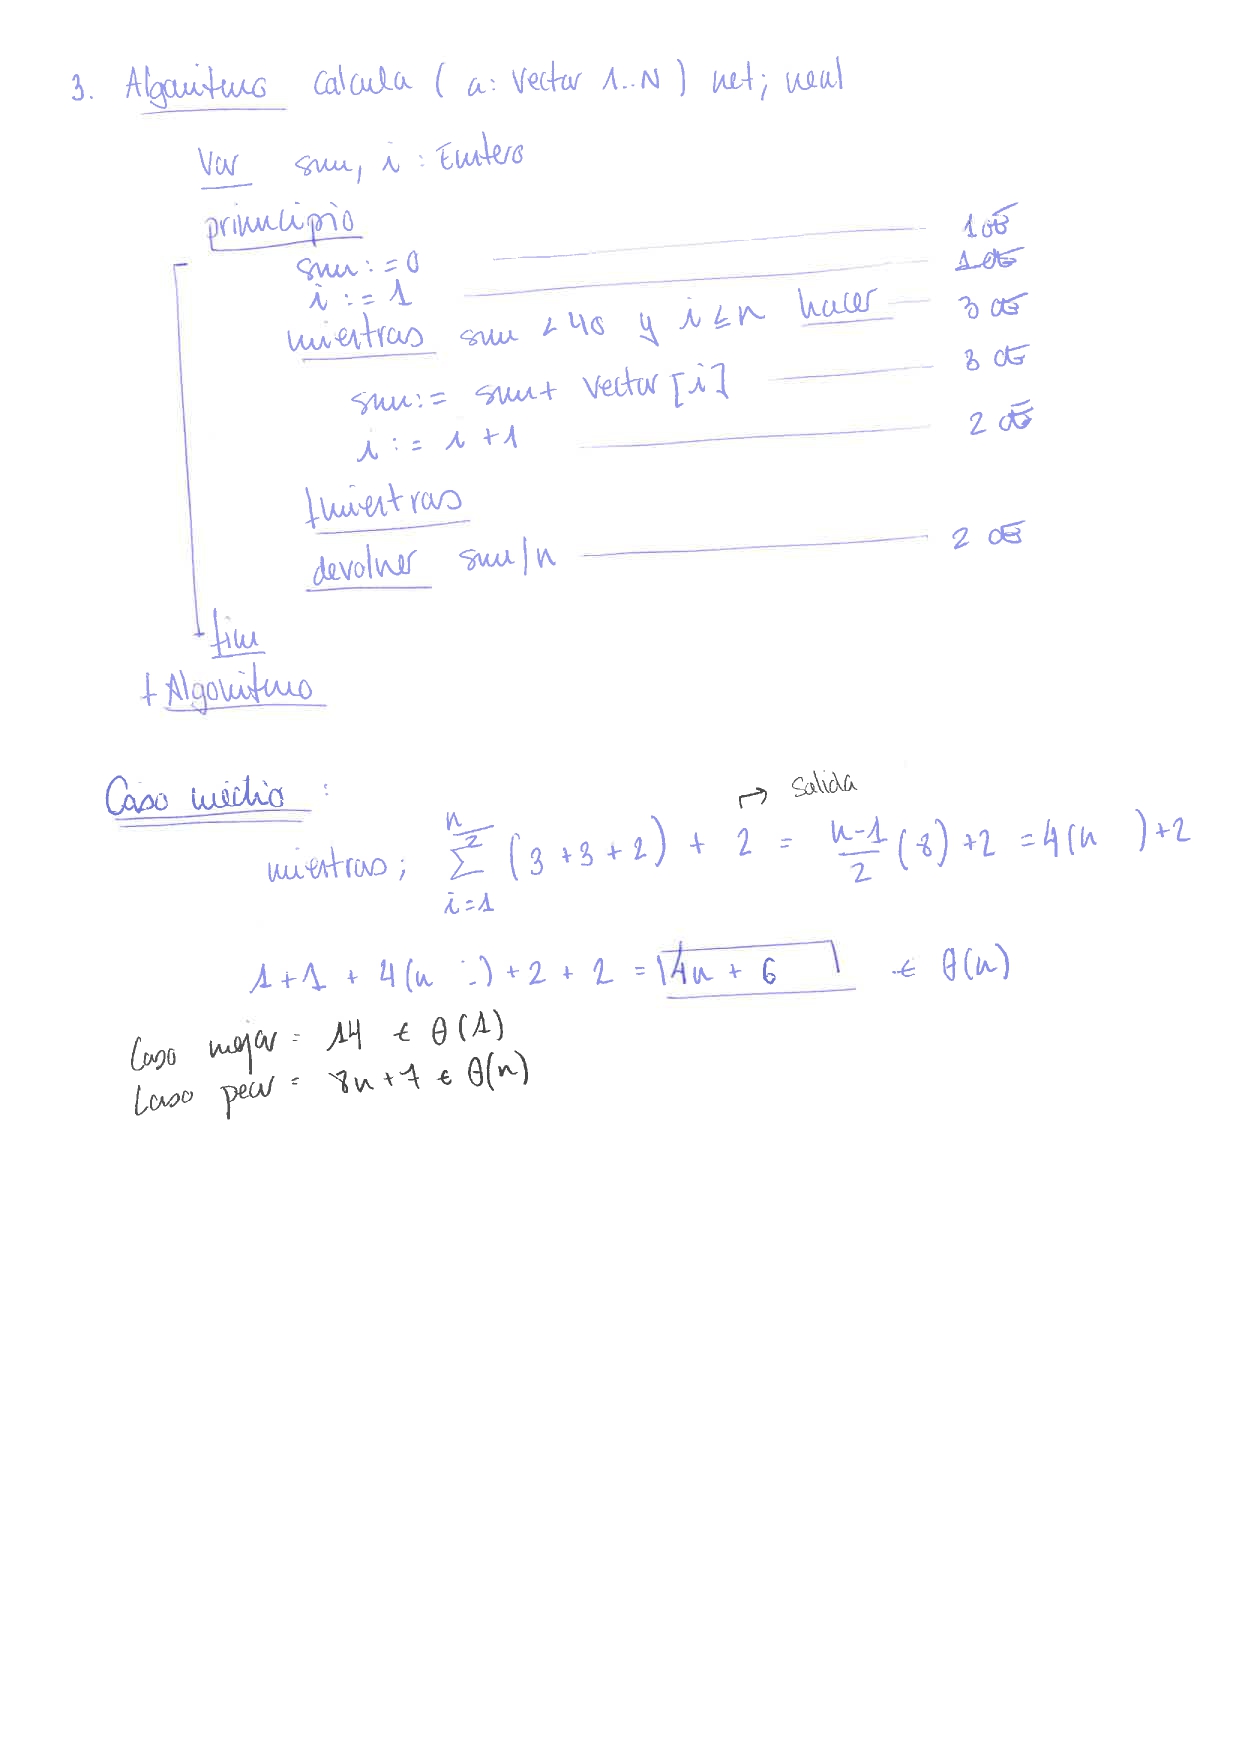 3. Algoritmo calcula ( a: vector 1..N ) ret; real
Var sum, i : Entero
principio
sum := 0 1 OE
i := 1 1 OE
mientras sum < 40 y i ≤ n hacer 3 OE
sum := sum + vector [i] 3 OE
i := i + 1 2 OE
fmientras
devolver sum/n 2 OE
fin
f Algoritmo
Caso medio :
→ salida
mientras; ∑_{i=1}^{n/2} (3+3+2) + 2 = (n-1)/2 (8) +2 = 4(n ) +2
1+1 + 4(n ) +2 + 2 = 4n + 6 ∈ θ(n)
Caso mejor = 14 ∈ θ(1)
Caso peor = 8n+7 ∈ θ(n)